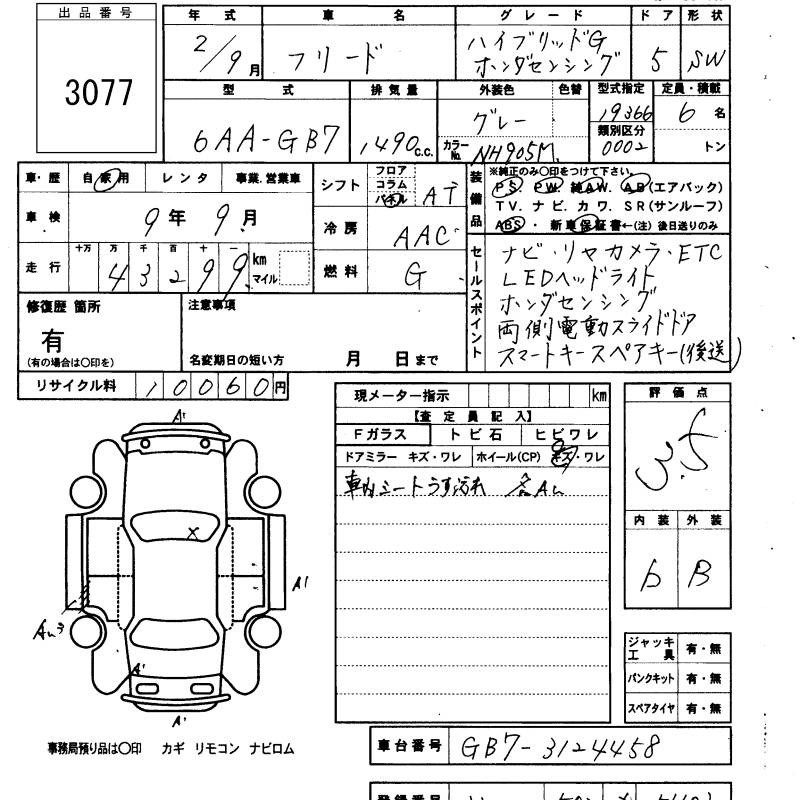 出品番号
3077
年式 車名 グレード ドア 形状
2/9月 フリード ハイブリッドG
ホンダセンシング 5 SW
型式 排気量 外装色 色替 型式指定 定員・積載
6AA-GB7 1490c.c. グレー 19366 6名
類別区分
カラーNo. NH905M 0002 トン
車・歴 自家用 レンタ 事業.営業車
車検 9年9月
走行 十万 万 千 百 十 一
43299 km
マイル
シフト フロア
コラム
パネル AT
冷房 AAC
燃料 G
装備品
※純正のみ〇印をつけて下さい。
PS. PW. 純AW. AB(エアバック)
TV. ナビ. カワ. SR(サンルーフ)
ABS・新車保証書←(注)後日送りのみ
セールスポイント
ナビ・リヤカメラ・ETC
LEDヘッドライト
ホンダセンシング
両側電動スライドドア
スマートキースペアキー(後送)
修復歴 箇所
有
(有の場合は〇印を)
注意事項
名変期日の短い方 月 日まで
リサイクル料 10060円
現メーター指示 km
【査定員記入】
Fガラス トビ石 ヒビワレ
ドアミラー キズ・ワレ ホイール(CP) キズ・ワレ
車内シートうす汚れ
評価点
3.5
内装 外装
b B
A1
X
A1
A'
A'
ジャッキ工具 有・無
パンクキット 有・無
スペアタイヤ 有・無
事務局預り品は〇印 カギ リモコン ナビロム
車台番号 GB7-3124458
登録番号